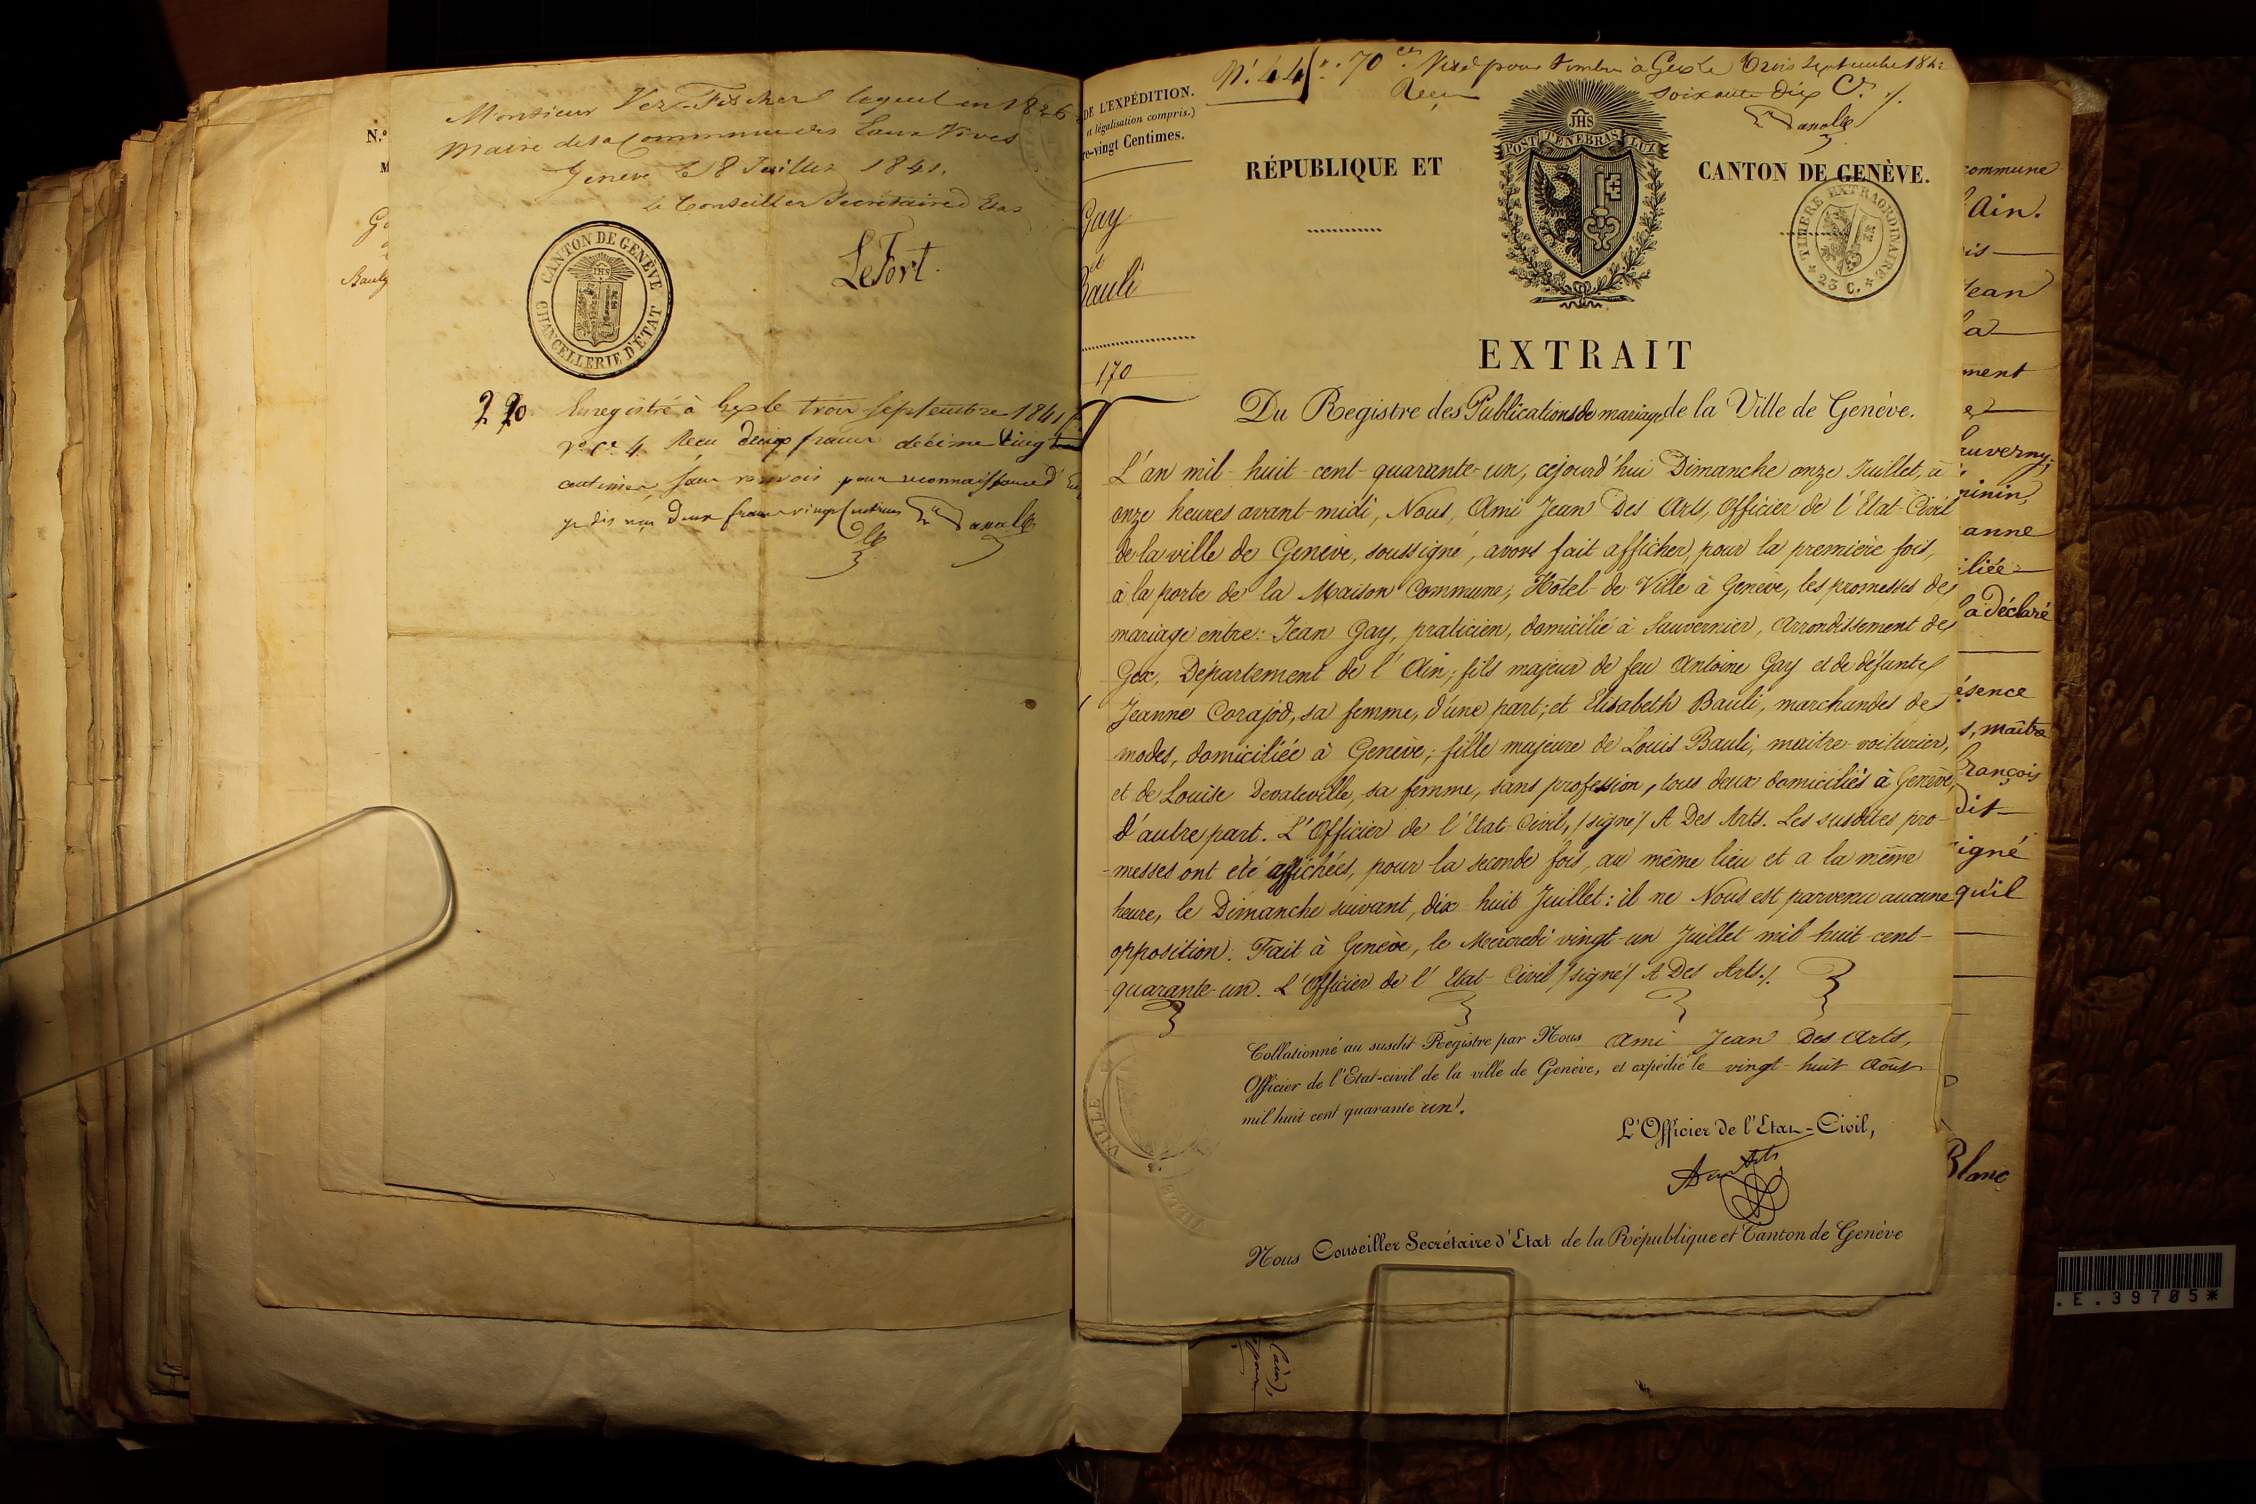 Monsieur Ver-Fischer lequel en 1826
Maire de la Commune des Eaux Vives
Genève le 8 Juillet 1841.
le Conseiller Secrétaire d'Etat
LeFort.
CANTON DE GENEVE
JHS
CHANCELLERIE D'ETAT
2 20
Enregistré à Gex le trois septembre 1841
Reçu deux francs décime vingt
centimes, sans renvois pour reconnaissance d'
je dis deux francs vingt centimes
N.º
M
Bauly
DE L'EXPÉDITION.
et légalisation compris.)
re-vingt Centimes.
Gay
et
Bauli
170
Nº. 44 70 ces Visé pour timbre à Gex le trois septembre 184
Reçu soixante dix Cs.
JHS
POST TENEBRAS LUX
RÉPUBLIQUE ET CANTON DE GENÈVE.
TIMBRE EXTRAORDINAIRE
* 25 C. *
EXTRAIT
Du Registre des Publications de mariage de la Ville de Genève.
L'an mil-huit-cent-quarante-un, cejourd'hui Dimanche onze Juillet, à
onze heures avant-midi, Nous, Ami Jean Des Arts, Officier de l'Etat-Civil
de la ville de Genève, soussigné, avons fait afficher, pour la première fois,
à la porte de la Maison Commune, Hôtel-de-Ville à Genève, les promesses de
mariage entre: Jean Gay, praticien, domicilié à Sauvernier, Arrondissement de
Gex, Département de l'Ain; fils majeur de feu Antoine Gay et de défunte
Jeanne Corajod, sa femme, d'une part; et Elisabeth Bauli, marchandes de
modes, domiciliée à Genève; fille majeure de Louis Bauli, maître-voiturier,
et de Louise Devateville, sa femme, sans profession, tous deux domiciliés à Genève,
d'autre part. L'Officier de l'Etat-Civil, /signé/ A Des Arts. Les susdites pro-
-messes ont été affichées, pour la seconde fois, au même lieu et a la même
heure, le Dimanche suivant, dix-huit Juillet: il ne Nous est parvenu aucune
opposition. Fait à Genève, le Mercredi vingt-un Juillet mil-huit-cent-
quarante-un. L'Officier de l'Etat-Civil /signé/ A Des Arts./.
Collationné au susdit Registre par Nous Ami Jean Des Arts,
Officier de l'Etat-civil de la ville de Genève, et expédié le vingt-huit Août
mil huit cent quarante un.
VILLE
L'Officier de l'Etat-Civil,
Nous Conseiller Secrétaire d'Etat de la République et Canton de Genève
commune
l'Ain.
is
Jean
la
ment
auverny;
inin,
anne
iliée
a déclaré
ésence
s, maître
François
dit
igné
qu'il
Blanc
.E.39705*